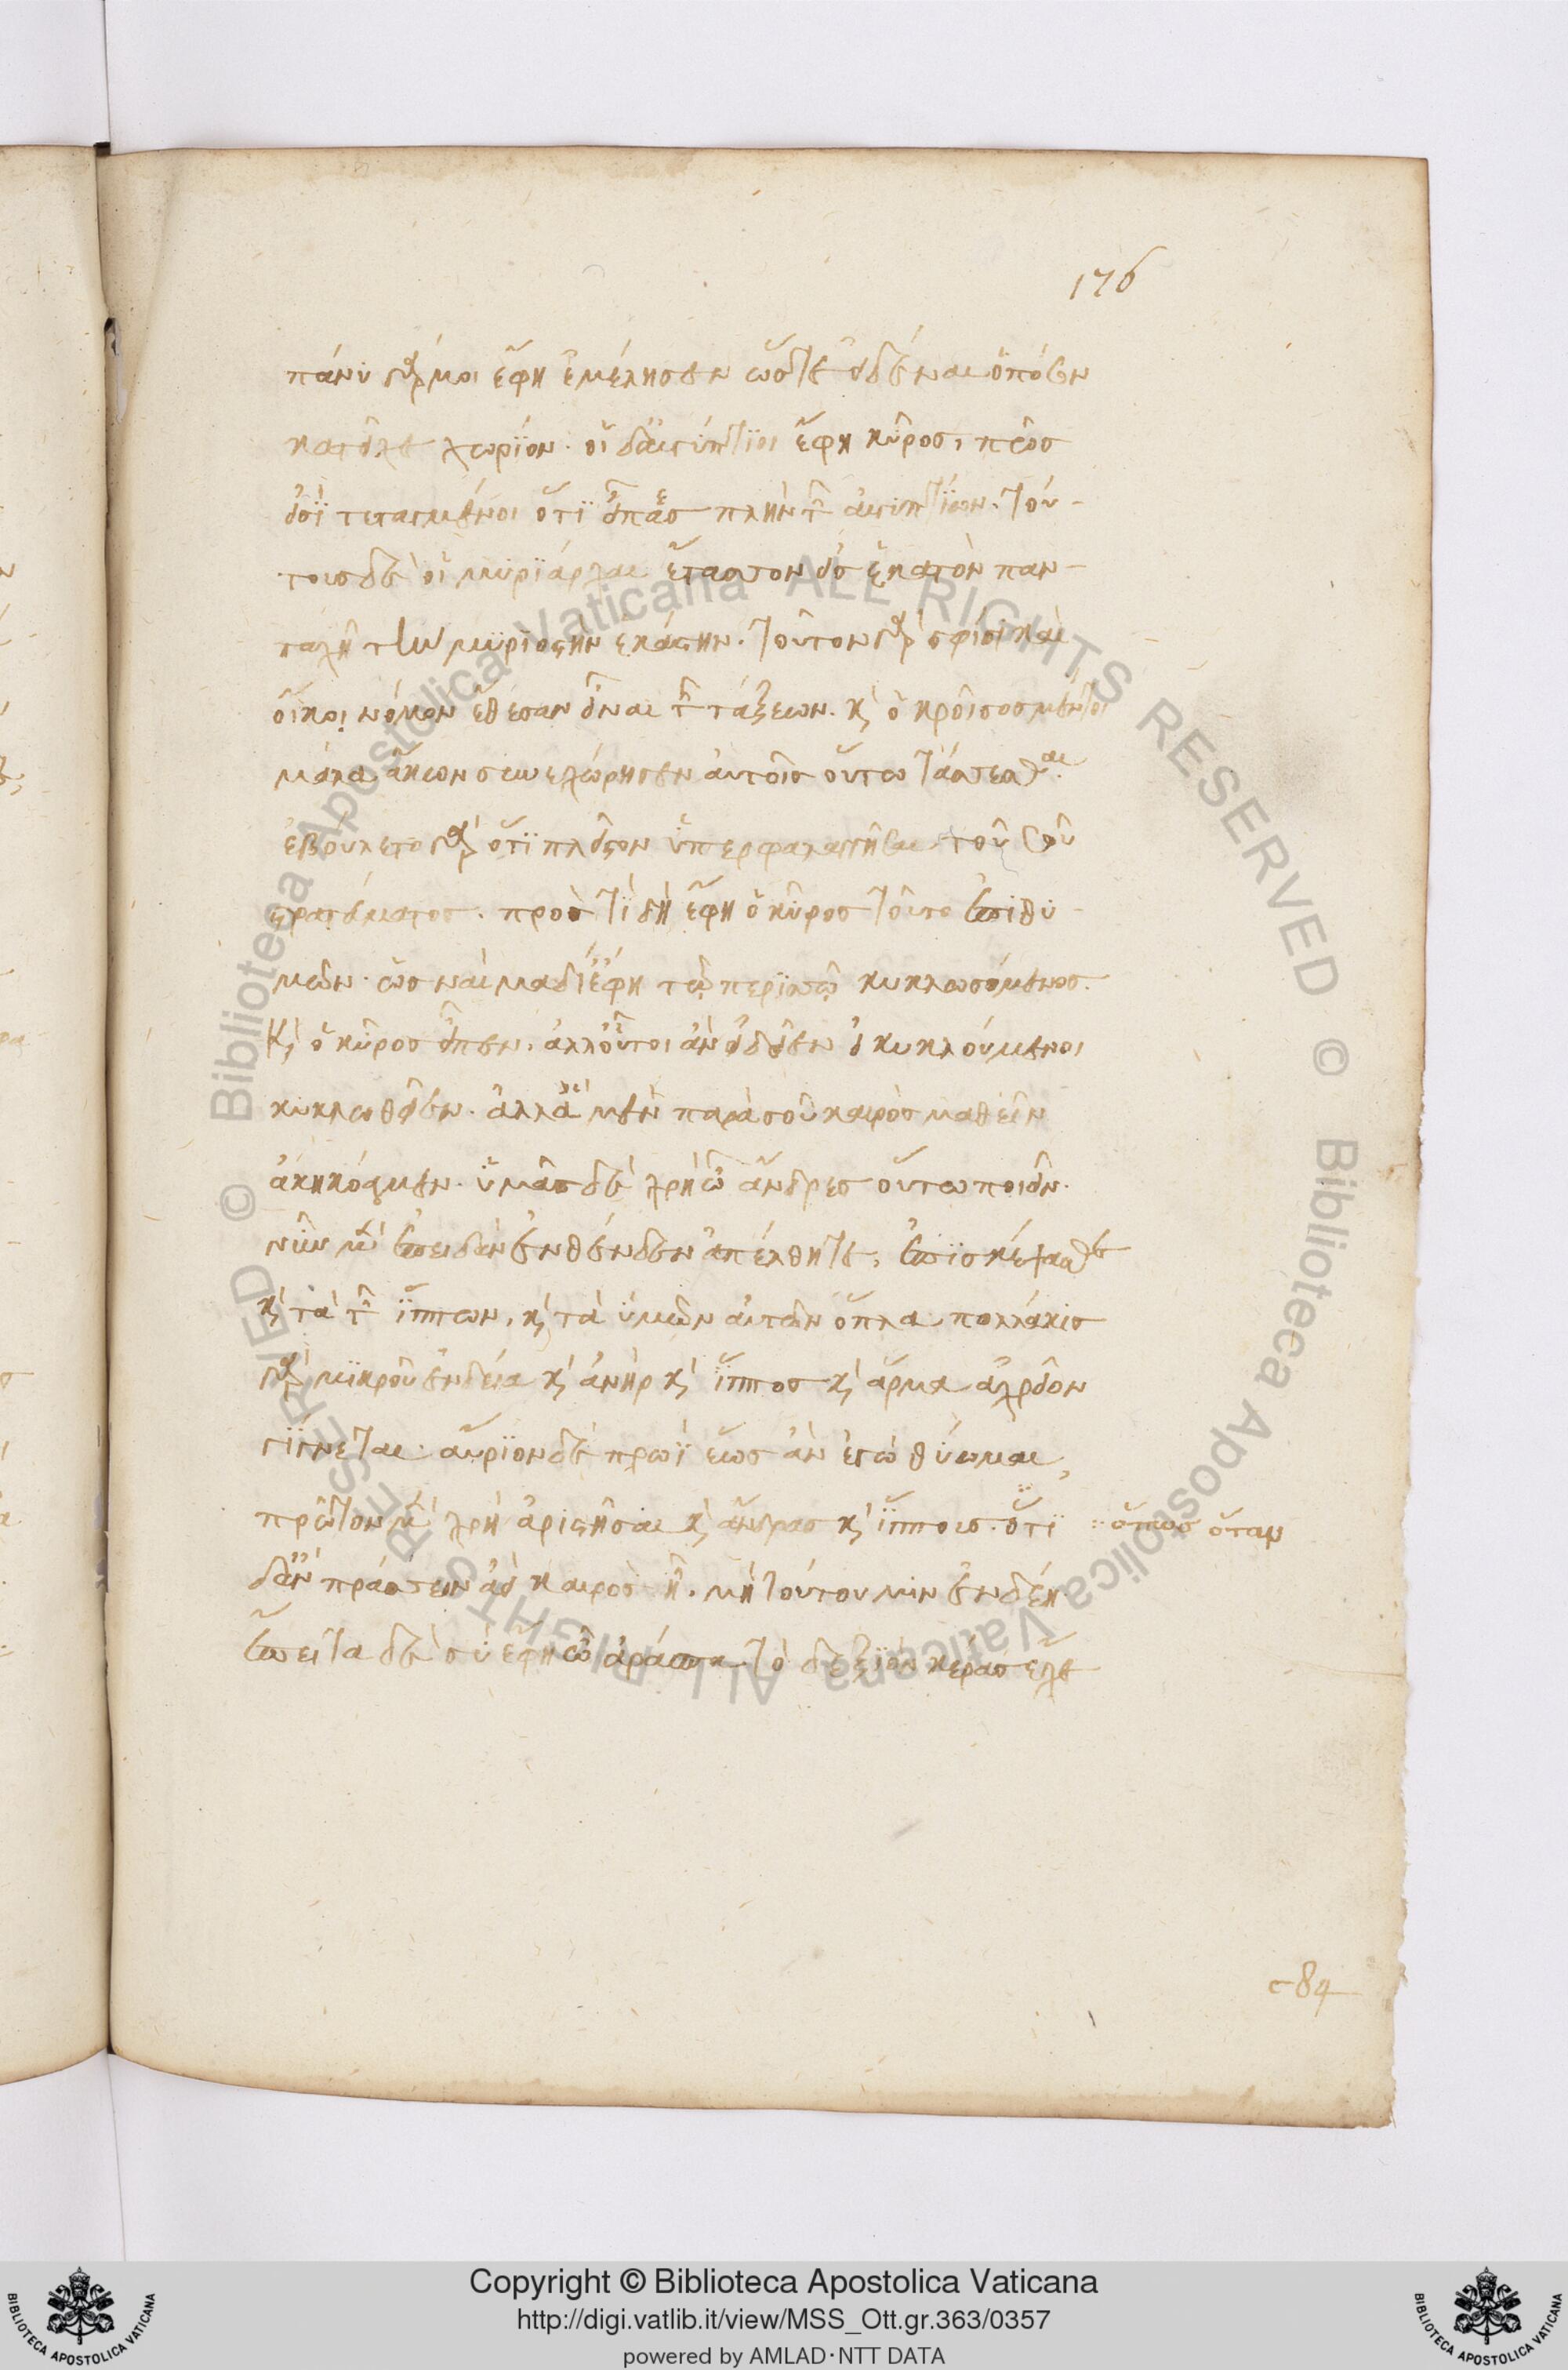 176
πάνυ γάρ μοι ἔφη ἐμέλησεν ὥστε εἰδέναι ὁπόσον
κατεῖχε χωρίον. οἱ δ' αἰγύπτιοι ἔφη κῦρος, πῶς
εἰσὶ τεταγμένοι ὅτι εἶπας πλὴν τῶν αἰγυπτίων. τού-
τους δὲ οἱ μυριάρχαι ἔταττον εἰς ἑκατὸν παν-
ταχῇ τὴν μυριοστὴν ἑκάστην. τοῦτον γὰρ σφίσι καὶ
οἴκοι νόμον ἔθεσαν εἶναι τῶν τάξεων. καὶ ὁ κροῖσος μέντοι
μάλα ἄκων συνεχώρησεν αὐτοῖς οὕτω τάττεσθαι.
ἐβούλετο γὰρ ὅτι πλεῖστον ὑπερφαλαγγῆσαι τοῦ σοῦ
στρατεύματος. πρὸς τί δὴ ἔφη ὁ κῦρος τοῦτο ἐπιθυ-
μῶν. ὡς ναὶ μὰ δί' ἔφη τῷ περιττῷ κυκλωσόμενος.
καὶ ὁ κῦρος εἶπεν. ἀλλ' οὗτοι ἂν εἰδεῖεν εἰ κυκλούμενοι
κυκλωθεῖεν. ἀλλ' ἃ μὲν παρὰ σοῦ καιρὸς μαθεῖν
ἀκηκόαμεν. ὑμᾶς δὲ χρὴ ὦ ἄνδρες οὕτω ποιεῖν.
νῦν μὲν ἐπειδὰν ἐνθένδεν ἀπέλθητε, ἐπισκέψασθε
καὶ τὰ τῶν ἵππων, καὶ τὰ ὑμῶν αὐτῶν ὅπλα πολλάκις
γὰρ μικροῦ ἐνδείᾳ καὶ ἀνὴρ καὶ ἵππος καὶ ἅρμα ἀχρεῖον
γίγνεται. αὔριον δὲ πρωῒ ἕως ἂν ἐγὼ θύωμαι,
πρῶτον μὲν χρὴ ἀριστῆσαι καὶ ἄνδρας καὶ ἵππους. ὅτι
ὅπως ὅταν
δ' ἂν πράττειν ἀεὶ καιρὸς ᾖ. μὴ τούτου μὶν ἐνδέῃ.
ἔπειτα δὲ σὺ ἔφη ὦ ἀράσπα τὸ δεξιὸν κέρας ἔχε
c-84
Copyright © Biblioteca Apostolica Vaticana
http://digi.vatlib.it/view/MSS_Ott.gr.363/0357
powered by AMLAD·NTT DATA